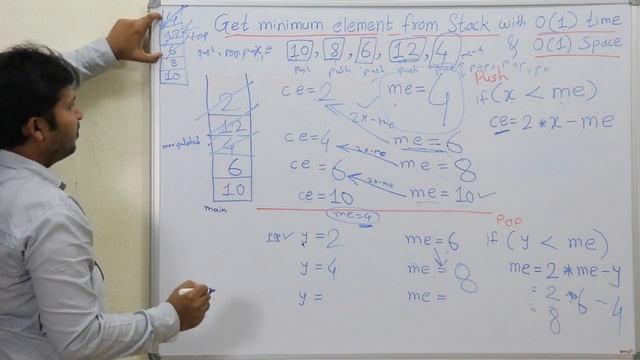 Get minimum element from Stack with O(1) time
& O(1) Space
14
12 top
6
8
10
10, 8, 6, 12, 4
push push push push
Push
if (x < me)
ce = 2 * x - me
2
12
4
6
10
manipulated
main
ce = 2 me = 4
2x-me
me = 6
ce = 4 me = 8
2x-me
ce = 6
2x-me
ce = 10 me = 10 ✓
me = 4
POP
pop ✓ y = 2 me = 6
y = 4 me = 8
y = me =
if (y < me)
me = 2 * me - y
= 2 * 6 - 4
= 8